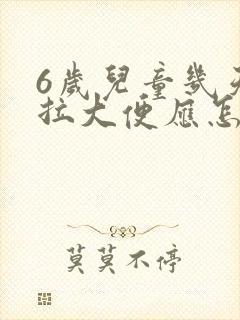 6歲兒童幾
拉大便應怎
莫莫不停